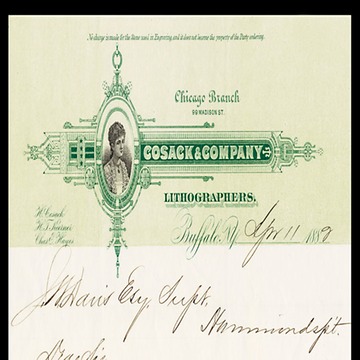 No charge is made for the Stone used in Engraving and it does not become the property of the Party ordering.
Chicago Branch
99 MADISON ST.
COSACK & COMPANY
LITHOGRAPHERS,
H. Cosack
Chas. E. Hayes
Buffalo, N.Y. Apr 11 188
J.W. Davis Esq. Supt.
Hammondspt.
Dear Sir